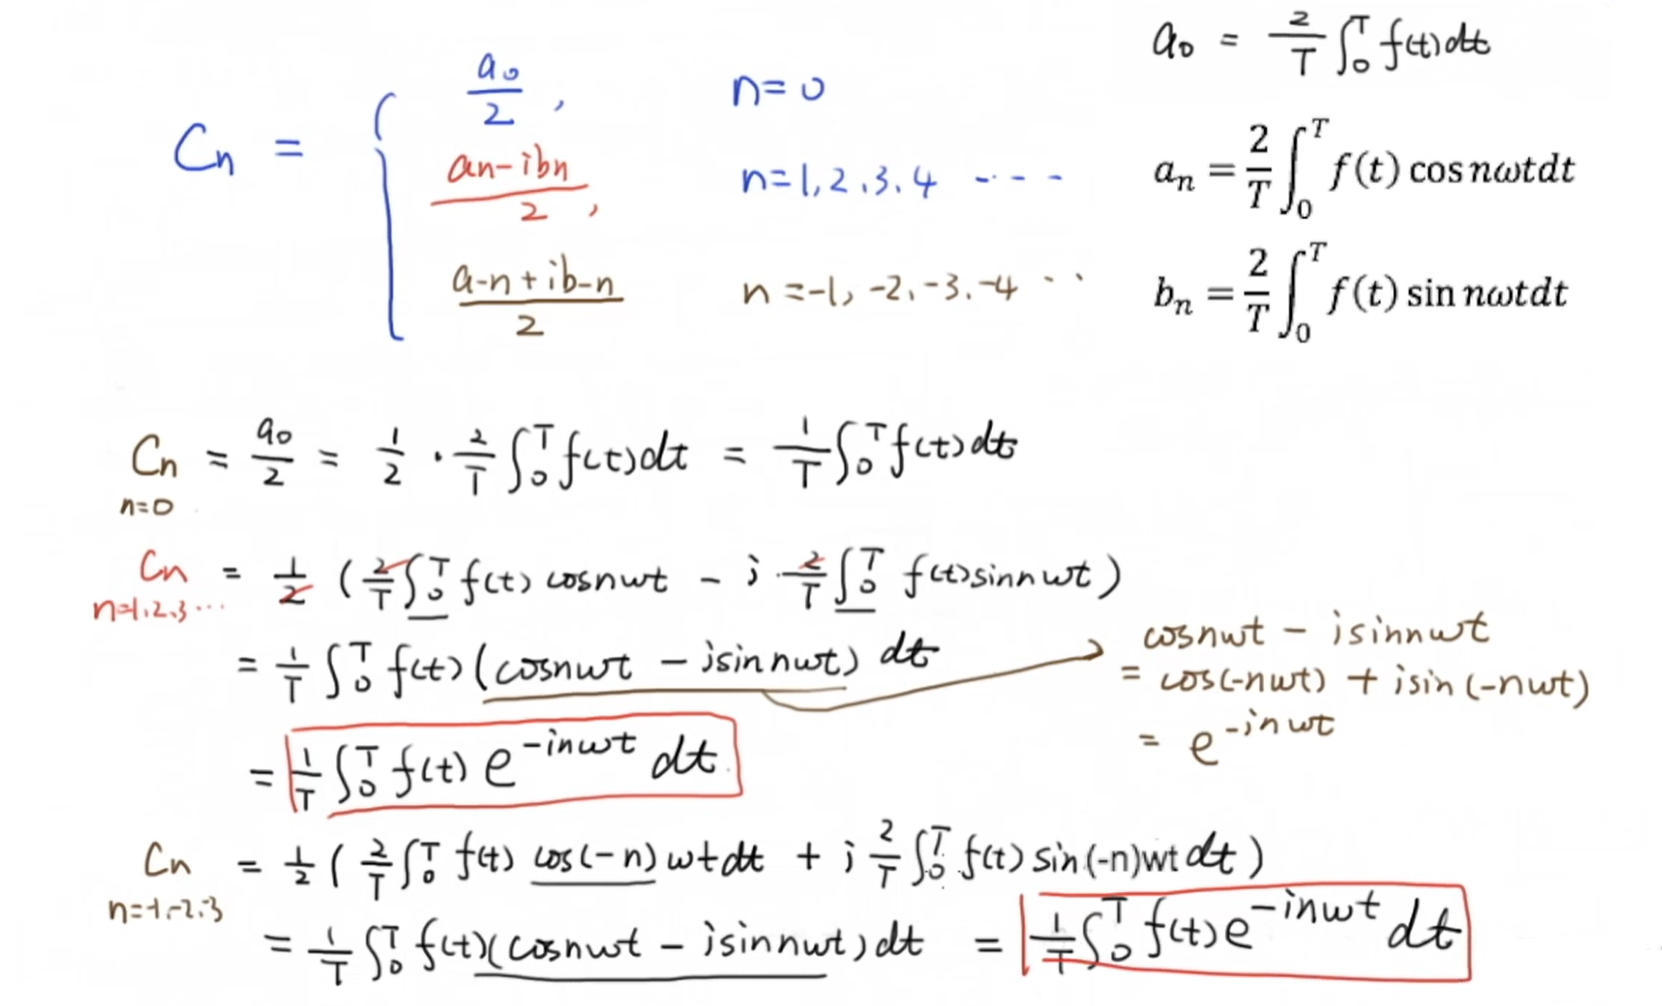 a₀ = 2/T ∫₀ᵀ f(t)dt
Cn = { a₀/2, n=0
an-ibn/2, n=1,2,3,4 ----
a-n+ib-n/2 n=-1,-2,-3,-4 ··
aₙ = 2/T ∫₀ᵀ f(t) cos nωtdt
bₙ = 2/T ∫₀ᵀ f(t) sin nωtdt
Cn = a₀/2 = 1/2 · 2/T ∫₀ᵀ f(t)dt = 1/T ∫₀ᵀ f(t)dt
n=0
Cn = 1/2 (2/T ∫₀ᵀ f(t) cosnwt - i · 2/T ∫₀ᵀ f(t)sinnwt)
n=1,2,3···
= 1/T ∫₀ᵀ f(t)(cosnwt - isinnwt) dt
cosnwt - isinnwt
= cos(-nwt) + isin(-nwt)
= e^-inwt
= 1/T ∫₀ᵀ f(t) e^-inwt dt
Cn = 1/2 (2/T ∫₀ᵀ f(t) cos(-n)wtdt + i 2/T ∫₀ᵀ f(t) sin(-n)wt dt)
n=-1,-2,-3
= 1/T ∫₀ᵀ f(t)(cosnwt - isinnwt)dt = 1/T ∫₀ᵀ f(t)e^-inwt dt